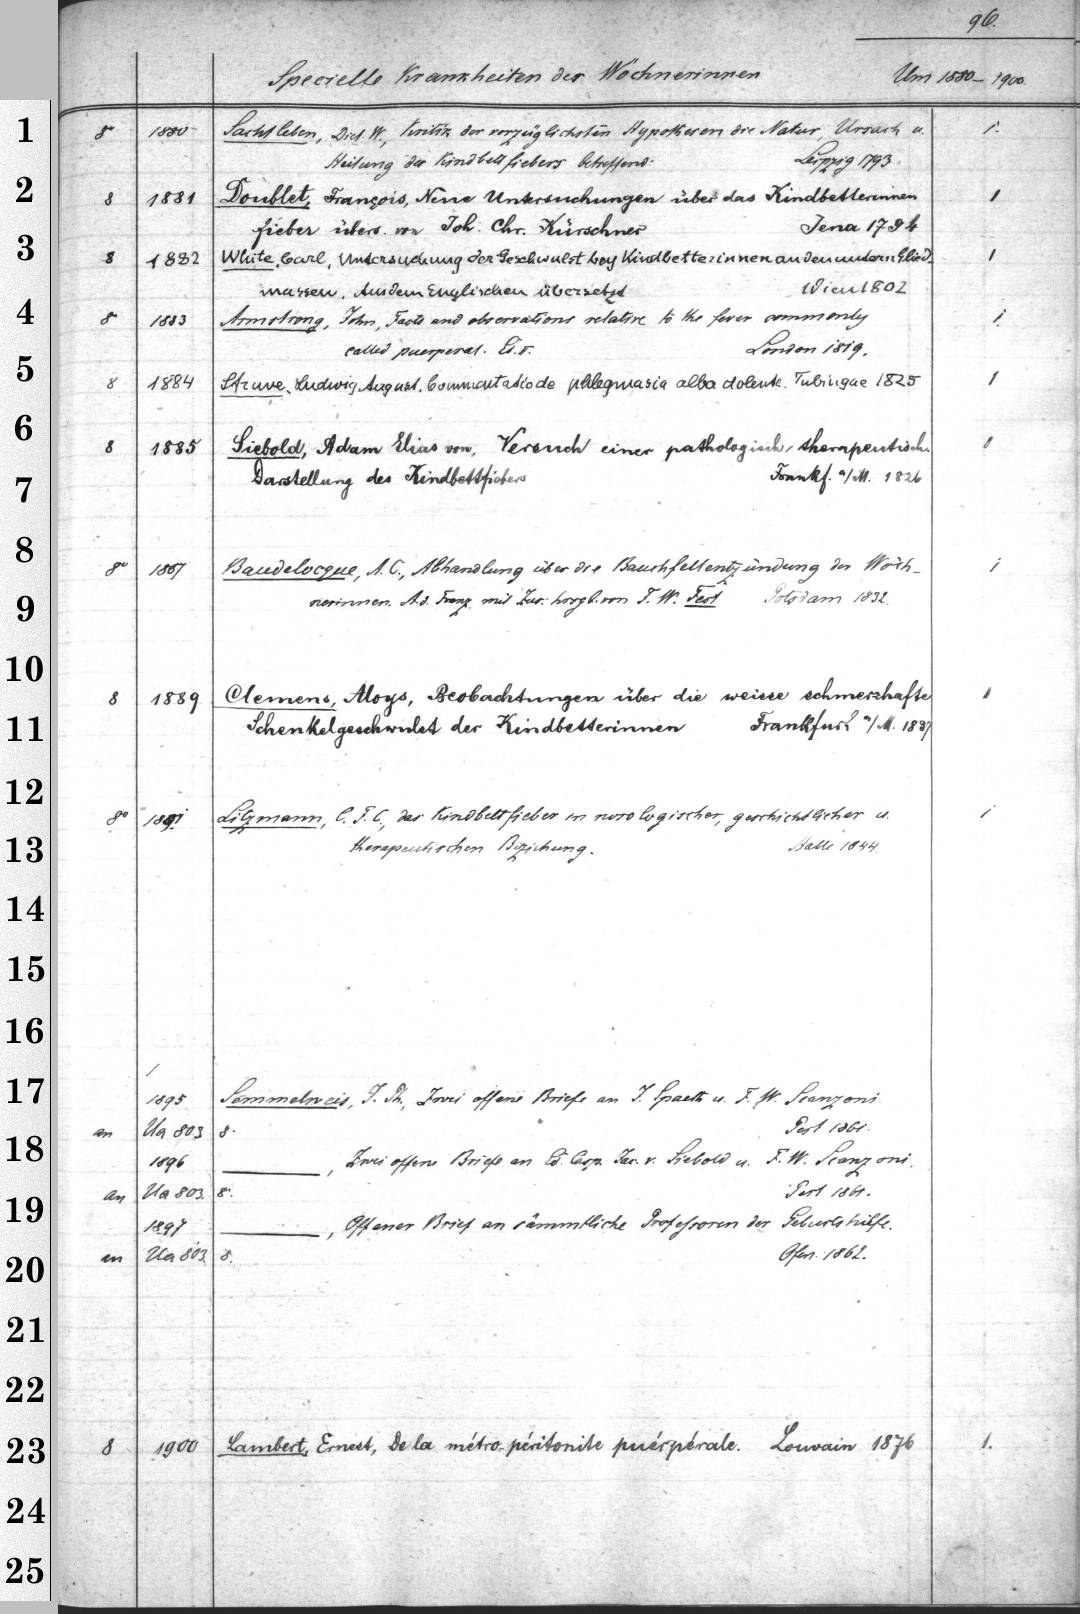 96.
Specielle Krankheiten der Wöchnerinnen Um 1880-1900.
1 8° 1880 Sachtleben, Diet. W., Kritik der vorzüglichsten Hypothesen die Natur, Ursach u. 1.
Heilung des Kindbettfiebers betreffend. Leipzig 1793.
2 8 1881 Doublet, François, Neue Untersuchungen über das Kindbetterinnen 1
fieber übers. von Joh. Chr. Kürschner Jena 1794
3 8 1882 White, Carl, Untersuchung der Geschwulst bey Kindbetterinnen an den untern Glied- 1
massen. Aus dem Englischen übersetzt Wien 1802
4 8° 1883 Armstrong, John, Facts and observations relative to the fever commonly 1.
called puerperal. Ed. 2. London 1819.
5 8 1884 Struve, Ludwig August, Commentatio de phlegmasia alba dolente. Tubingae 1825 1
6 8 1885 Siebold, Adam Elias von, Versuch einer pathologisch, therapeutisch. 1
7 Darstellung des Kindbettfiebers Frankf. a/M. 1826
8 8° 1887 Baudelocque, A. C., Abhandlung über die Bauchfellentzündung der Wöch- 1
9 nerinnen. A. d. Franz. mit Zus. hrsgb. von F. W. Fest Potsdam 1832.
10 8 1889 Clemens, Aloys, Beobachtungen über die weisse schmerzhafte 1
11 Schenkelgeschwulst der Kindbetterinnen Frankfurt a/M. 1837
12 8° 1891 Litzmann, C. F. C., das Kindbettfieber in nosologischer, geschichtlicher u. 1
13 therapeutischen Beziehung. Halle 1844.
14
15
16
17 1895 Semmelweis, J. Ph., Zwei offene Briefe an J. Spaeth u. F. W. Scanzoni.
an Ua 803 8. Pest 1861.
18 1896 ———, Zwei offene Briefe an Ed. Casp. Jac. v. Siebold u. F. W. Scanzoni.
an Ua 803. 8. Pest 1861.
19 1897 ———, Offener Brief an sämmtliche Professoren der Geburtshilfe.
20 an Ua 803. 8. Ofen. 1862.
21
22
23 8 1900 Lambert, Ernest, De la métro-péritonite puérpérale. Louvain 1876 1.
24
25